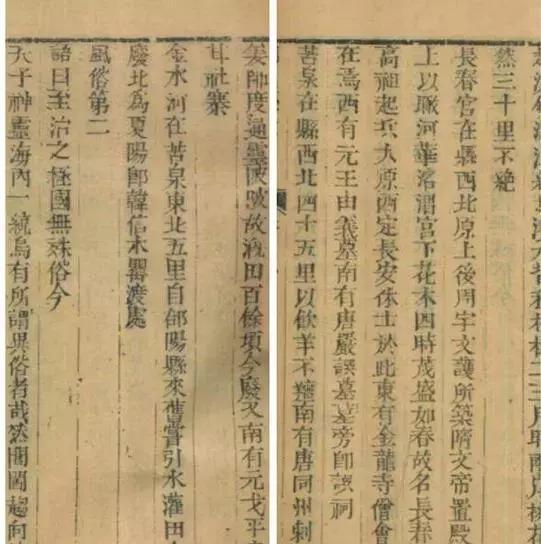 二三月時兩岸桃花
然三十里不絶
長春宮在縣西北原上後周宇文護所築隋文帝置殿
上以眡河華洛渭宮下花木四時茂盛如春故名長春
高祖起兵大原西定長安休士於此東有金龍寺僧會
在焉西有元王由義墓南有唐嚴譔墓墓旁即譔祠
苦泉在縣西北四十五里以飲羊不羶南有唐同州刺
姜師度通靈陂陂故溉田百餘頃今廢又南有元戈平
甘社寨
金水河在苦泉東北五里自郃陽縣來舊嘗引水灌田
廢北為夏陽即韓信木罌渡處
風俗第二
語曰至治之極國無殊俗今
天子神靈海內一統烏有所謂異俗者哉然閭閻趨向